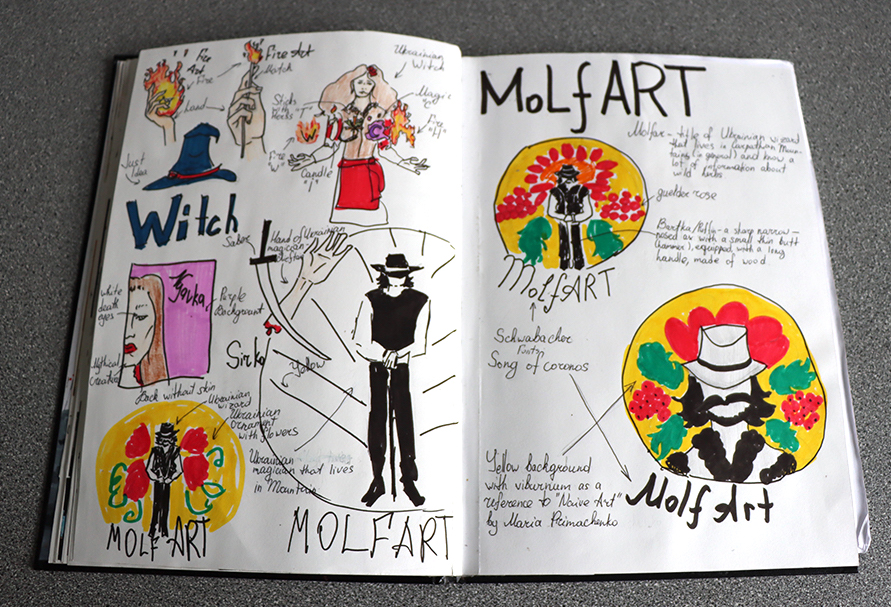 Fire
Art
Fire
Hand
Fire Art
Match
Ukrainian
Witch
Sticks
with
herbs "T"
Magic
"C"
Fire
"W"
Candle
"I"
Fire
"H"
Just
Idea
Witch
Saber
Hand of Ukrainian
magician
white
death
eyes
Mythical
Creature
Purple
Background
Back without skin
Sirko
Yellow
Ukrainian
wizard
Ukrainian
Ornament
with flowers
Ukrainian
magician that lives
in Mountain
MOLFART
MOLFART
MolfART
Molfar - title of Ukrainian wizard
that lives in Carpathian Moun-
tains (in general) and know a
lot of information about
wild herbs
guelder rose
Bartka - a sharp narrow-
nosed ax with a small thin butt
(hammer), equipped with a long
handle, made of wood
MolfART
Schwabacher
Fonts
Song of coronos
Yellow background
with viburnum as a
reference to "Naive Art"
by Maria Primachenko
Molf Art